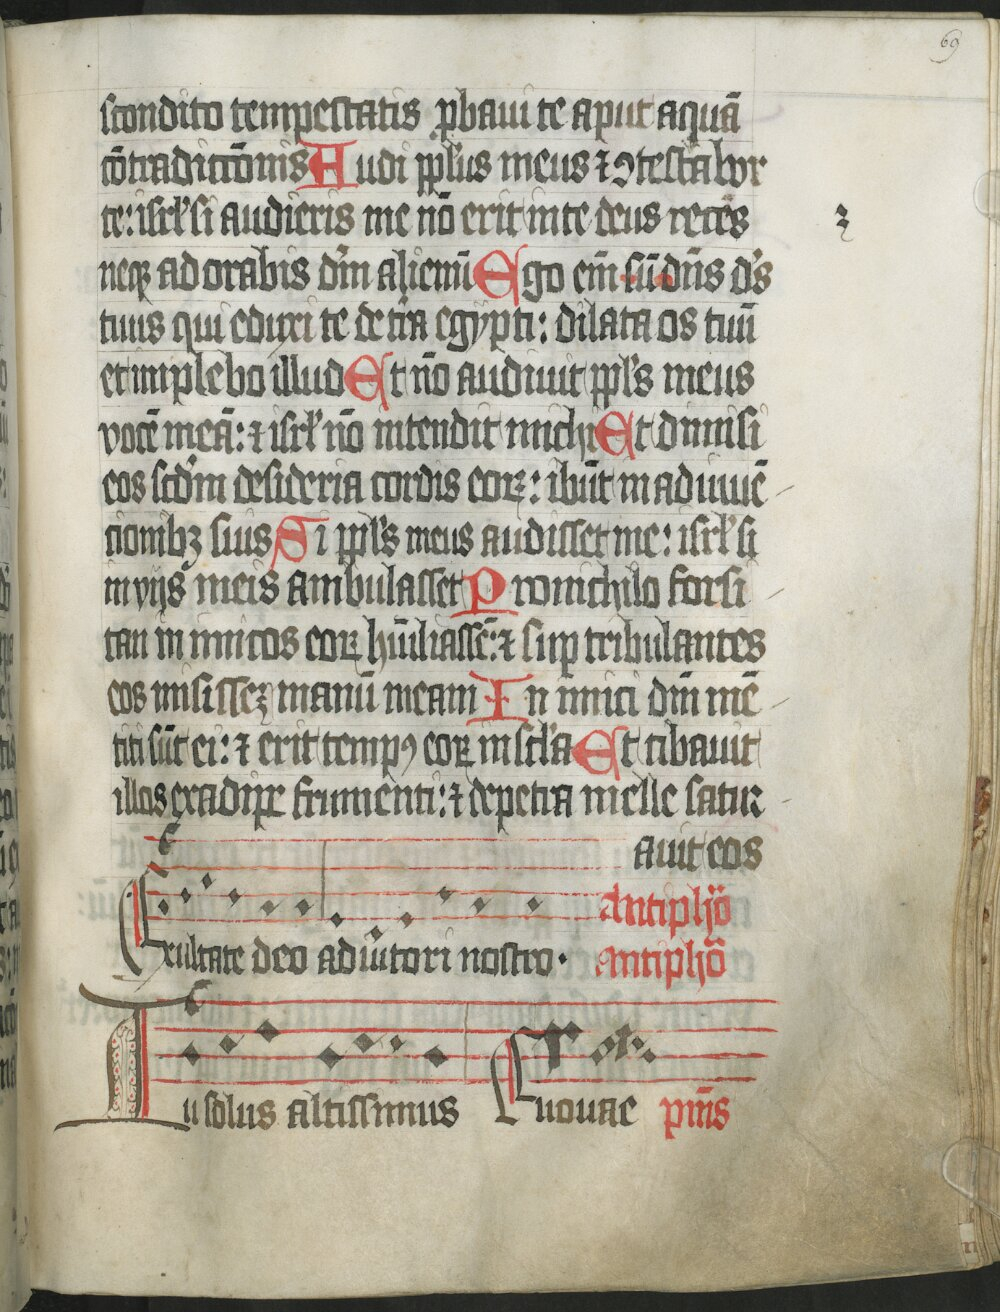 69
scondito tempestatis ꝓbaui te aput aquā
cōtradictōnis Audi ppl̄us meus ⁊ ꝯtestabor
te: isrl̄ si audieris me nō erit in te deus recēs
neqꝫ ad orabis dm̄ alienū Ego em̄ sū dn̄s ds̄
tuus qui eduxi te de tr̄a egẏpti: dilata os tuū
et implebo illud Et nō audiuit ppl̄s meus
vocē meā: ⁊ isrl̄ nō intendit michi Et dimisi
eos scd̄m desideria cordis eoꝝ: ibūt in adinuē
tionibꝫ suis Si ppl̄s meus audisset me: isrl̄ si
in vijs meis ambulasset Pro nichilo forsi
tan in imicos eoꝝ hūiliassē: ⁊ suꝑ tribulantes
eos misisseꝫ manū meam In imici dm̄ mē
titi sūt ei: ⁊ erit tempꝰ eoꝝ in scl̄a Et cibauit
illos exadipe frumenti: ⁊ depetra melle satur
auit eos
Antipho
Exultate deo adiutori nostro. antipho
Tu solus altissimus Euouae pm̄s